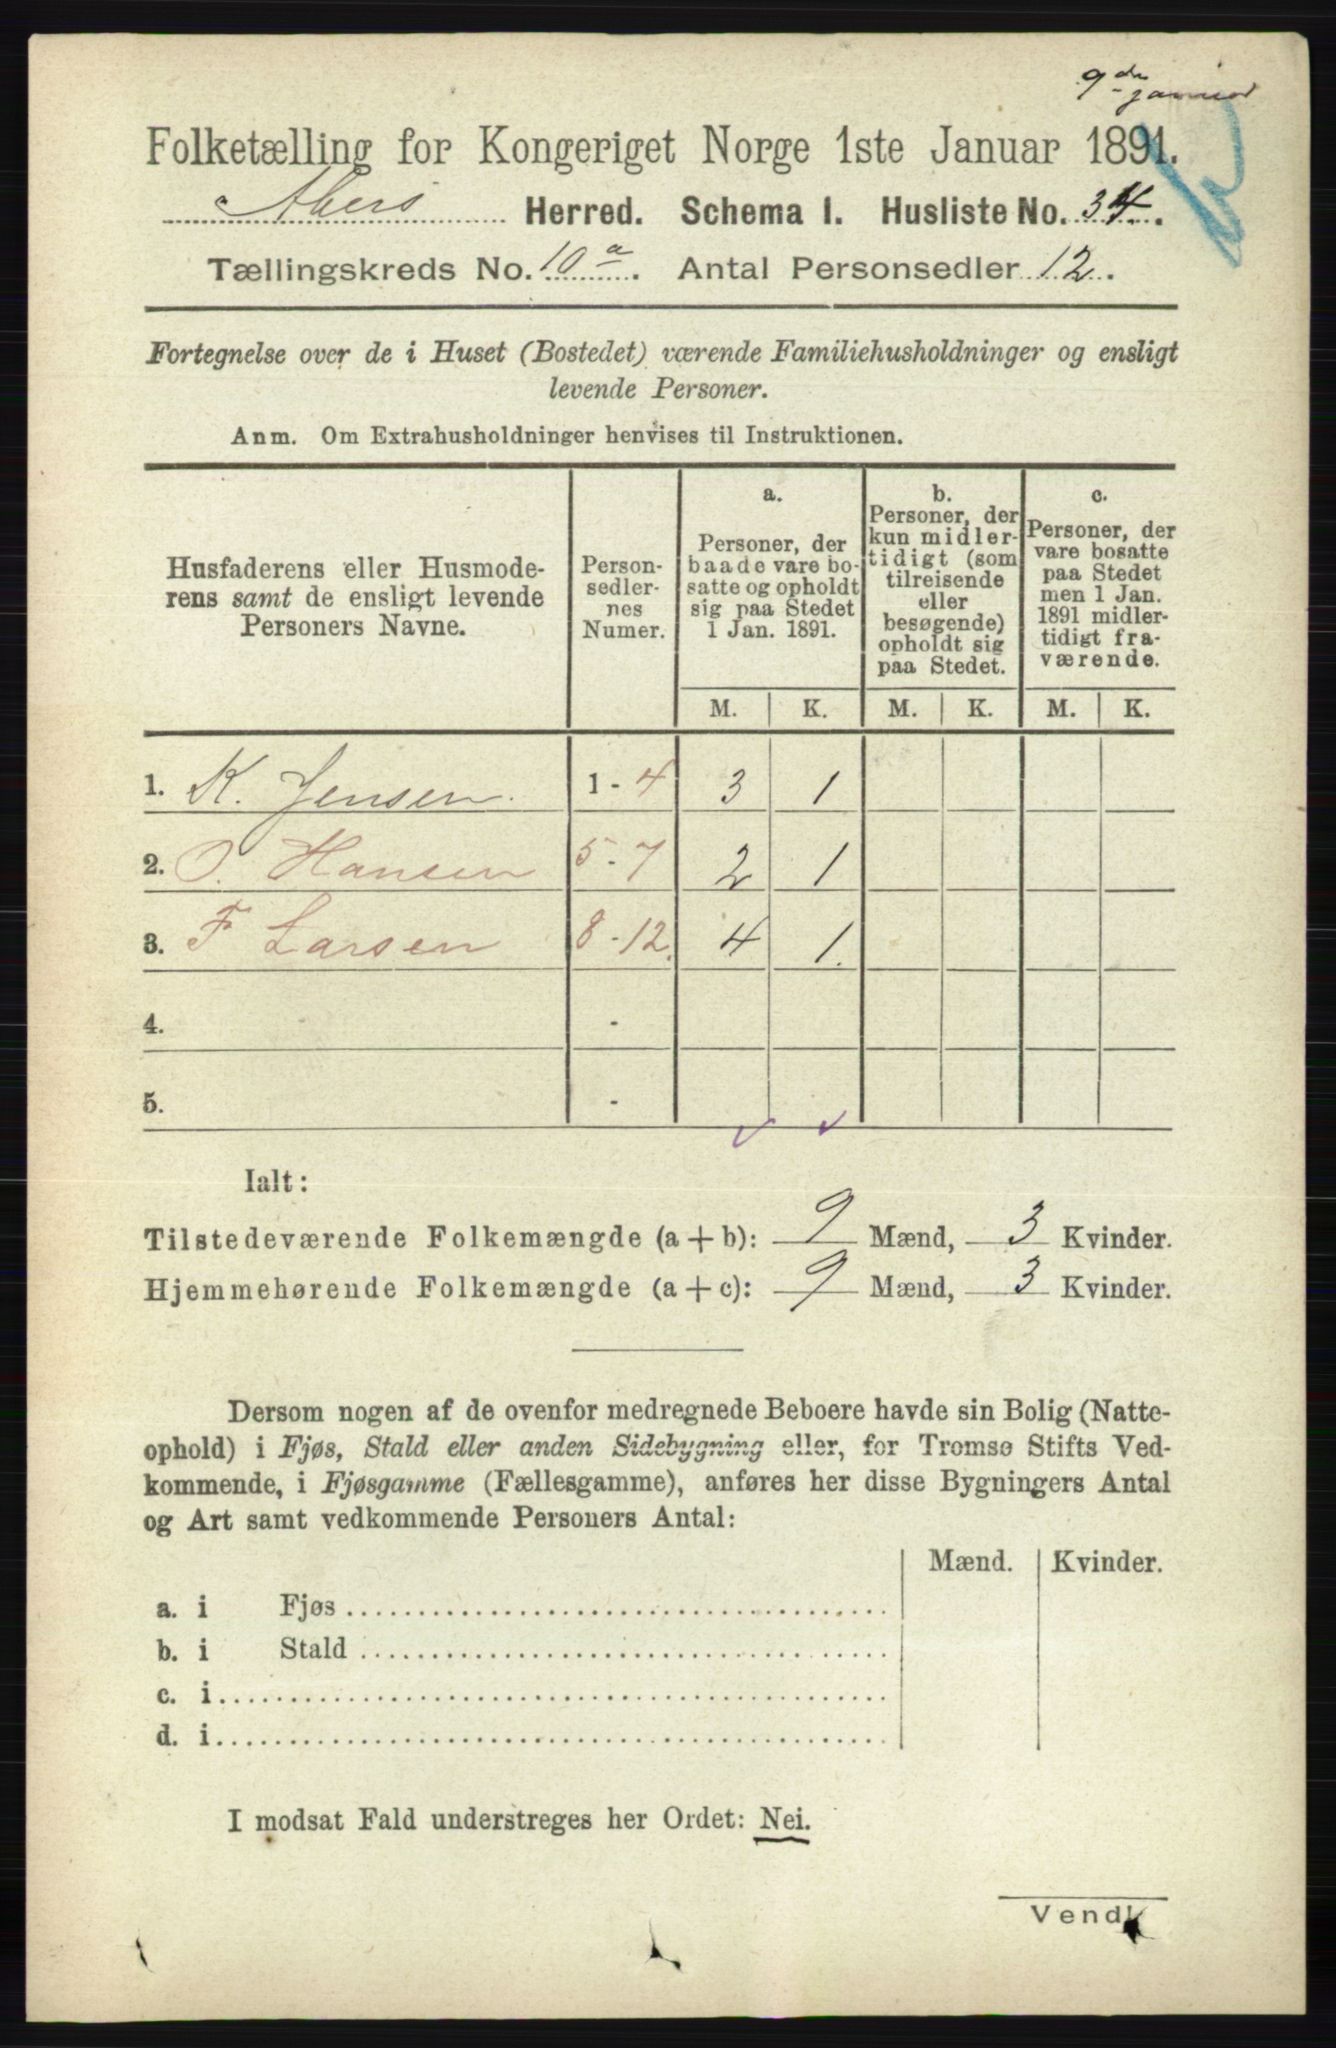 9de januar
Folketælling for Kongeriget Norge 1ste Januar 1891.
Akers Herred. Schema I. Husliste No. 34.
Tællingskreds No. 10a. Antal Personsedler 12.
Fortegnelse over de i Huset (Bostedet) værende Familiehusholdninger og ensligt
levende Personer.
Anm. Om Extrahusholdninger henvises til Instruktionen.
Husfaderens eller Husmode-
rens samt de ensligt levende
Personers Navne.
Person-
sedler-
nes
Numer.
a.
Personer, der
baade vare bo-
satte og opholdt
sig paa Stedet
1 Jan. 1891.
b.
Personer, der
kun midler-
tidigt (som
tilreisende
eller
besøgende)
opholdt sig
paa Stedet.
c.
Personer, der
vare bosatte
paa Stedet
men 1 Jan.
1891 midler-
tidigt fra-
værende.
M. K. M. K. M. K.
1. K. Jensen. 1 - 4 3 1
2. O. Hansen 5 - 7 2 1
3. F Larsen 8 - 12. 4 1.
4. -
5. -
Ialt:
Tilstedeværende Folkemængde (a + b): 9 Mænd, 3 Kvinder.
Hjemmehørende Folkemængde (a + c): 9 Mænd, 3 Kvinder.
Dersom nogen af de ovenfor medregnede Beboere havde sin Bolig (Natte-
ophold) i Fjøs, Stald eller anden Sidebygning eller, for Tromsø Stifts Ved-
kommende, i Fjøsgamme (Fællesgamme), anføres her disse Bygningers Antal
og Art samt vedkommende Personers Antal:
Mænd. Kvinder.
a. i Fjøs
b. i Stald
c. i
d. i
I modsat Fald understreges her Ordet: Nei.
Vend!